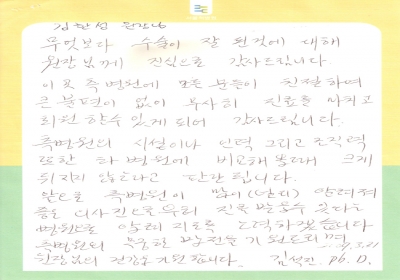 김찬섭 원장님
무엇보다 수술이 잘 된것에 대해
원장님께 진심으로 감사드립니다.
이곳 측병원에 모든 분들이 친절하여
큰 불편이 없이 무사히 진료를 마치고
퇴원 할수 있게 되어 감사드립니다.
측병원의 시설이나 인력 그리고 조직력
또한 타 병원에 비교해 볼때 크게
뒤지지 않는다고 판단 됩니다.
앞으로 측병원이 많이 (널리) 알려져
좋은 의사진으로부터 진료 받을수 있다는
병원으로 알려 지도록 노력하겠습니다
측병원의 무궁한 발전을 기원드리며
3.21
원장님의 건강을 기원합니다. 김석진 ph.D.